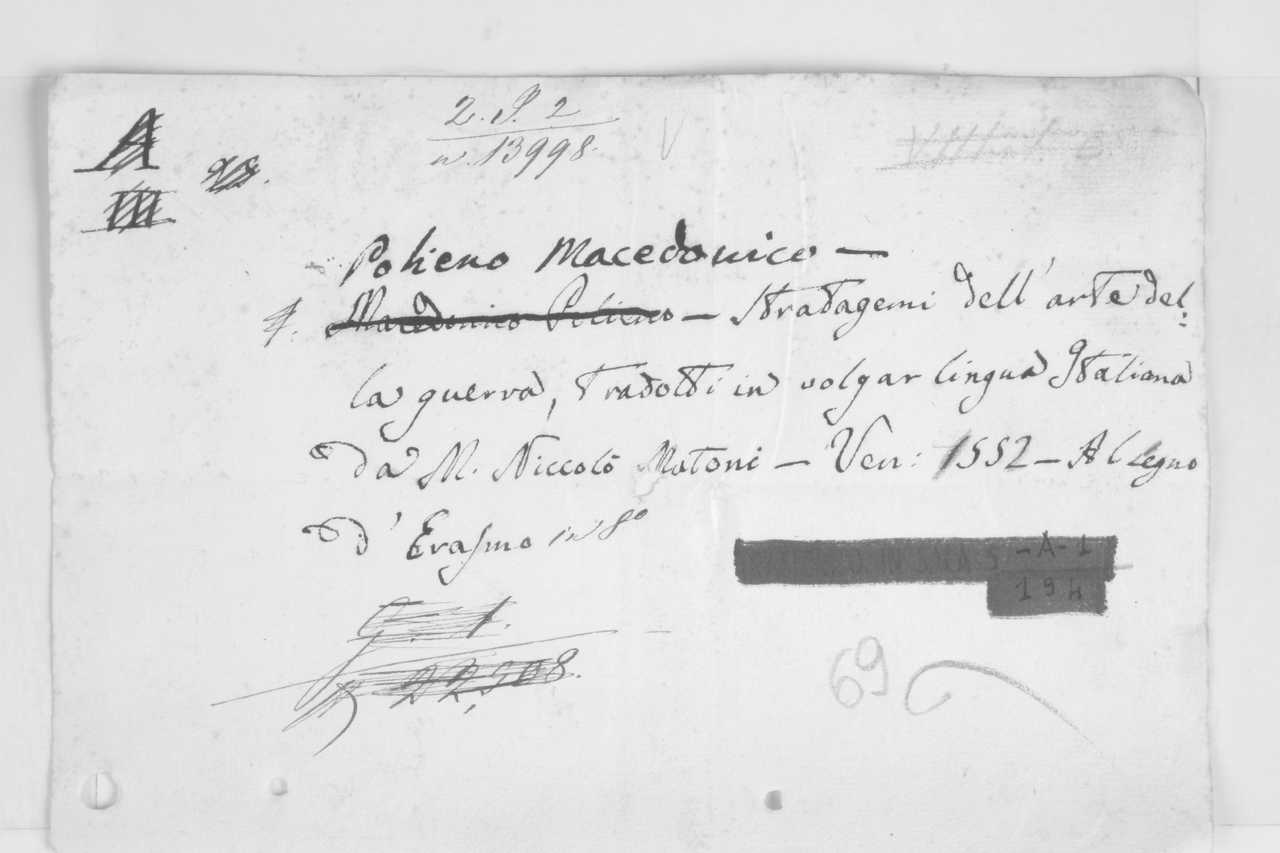 2. P. 2
n. 13998.
Polieno Macedonico —
4. Macedonico Polieno — Stratagemi dell' arte del:
la guerra, tradotti in volgar lingua Italiana
da M. Niccolò Mutoni — Ven: 1552 — Al Legno
d' Erasmo in 8º
IN SALA 5 - A - 1
194
G. 1.
22,508.
69